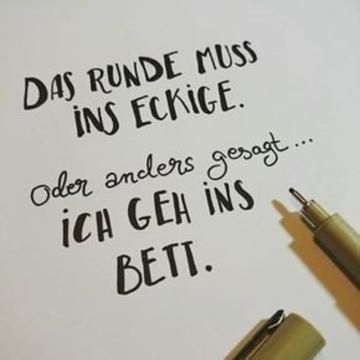 DAS RUNDE MUSS
INS ECKIGE.
Oder anders gesagt...
ICH GEH INS
BETT.